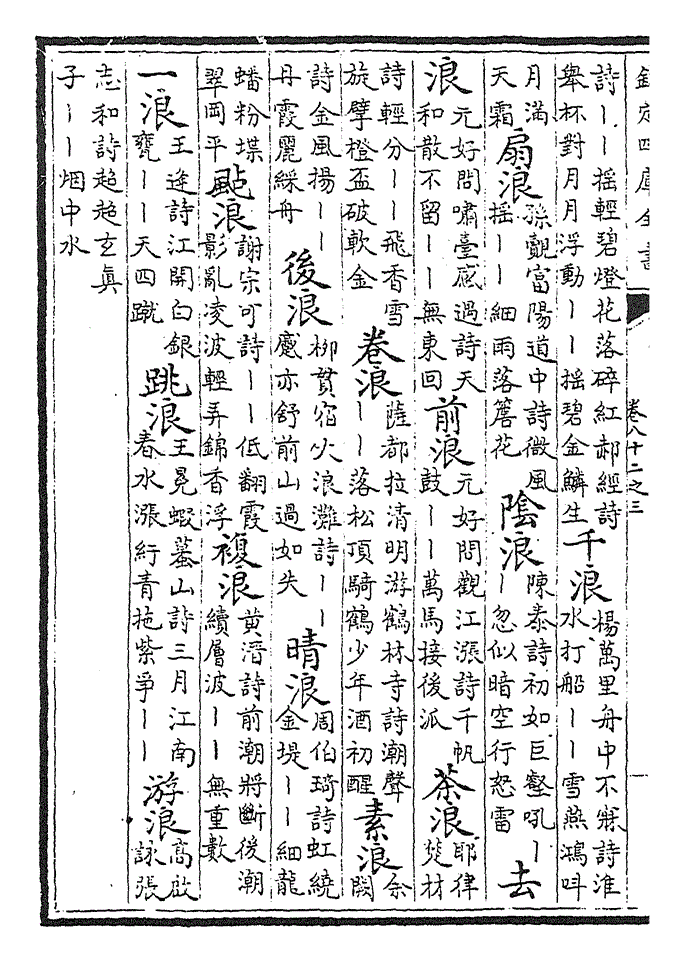 欽定四庫全書
卷八十二之三
詩丨丨搖輕碧燈花落碎紅郝經詩
舉杯對月月浮動丨丨搖碧金鱗生
千浪
楊萬里舟中不寐詩淮
水打船丨丨雪燕鴻呌
月滿
天霜
扇浪
孫覿富陽道中詩微風
搖丨丨細雨落簷花
陰浪
陳泰詩初如巨壑吼丨
丨忽似暗空行怒雷
去
浪
元好問嘯臺感遇詩天
和散不留丨丨無東回
前浪
元好問觀江漲詩千帆
鼓丨丨萬馬接後派
茶浪
耶律
楚材
詩輕分丨丨飛香雪
旋擘橙盃破軟金
卷浪
薩都拉清明游鶴林寺詩潮聲
丨丨落松頂騎鶴少年酒初醒
素浪
余
闕
詩金風揚丨丨
丹霞麗綵舟
後浪
柳貫宿火浪灘詩丨丨
魘亦舒前山過如失
晴浪
周伯琦詩虹繞
金堤丨丨細龍
蟠粉堞
翠岡平
颭浪
謝宗可詩丨丨低翻霞
影亂凌波輕弄錦香浮
複浪
黄溍詩前潮將斷後潮
續層波丨丨無重數
一浪
王逢詩江開白銀
甕丨丨天四蹴
跳浪
王冕蝦蟇山詩三月江南
春水漲紆青拖紫爭丨丨
游浪
高啟
詠張
志和詩超超玄真
子丨丨烟中水